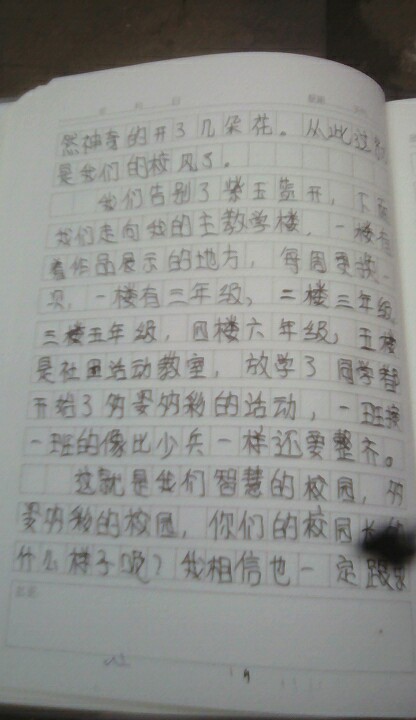 然神奇的开了几朵花。从此这就
是我们的校风了。
我们告别了紫玉苑开，下面
我们走向我的主教学楼，一楼有
着作品展示的地方，每周更换一
项，一楼有二年级，二楼三年级
三楼五年级，四楼六年级，五楼
是社团活动教室，放学了同学都
开始了多姿多彩的活动，一班接
一班的像比少兵一样还要整齐。
这就是我们智慧的校园，多
姿多彩的校园，你们的校园
什么样子呢？我相信也一定